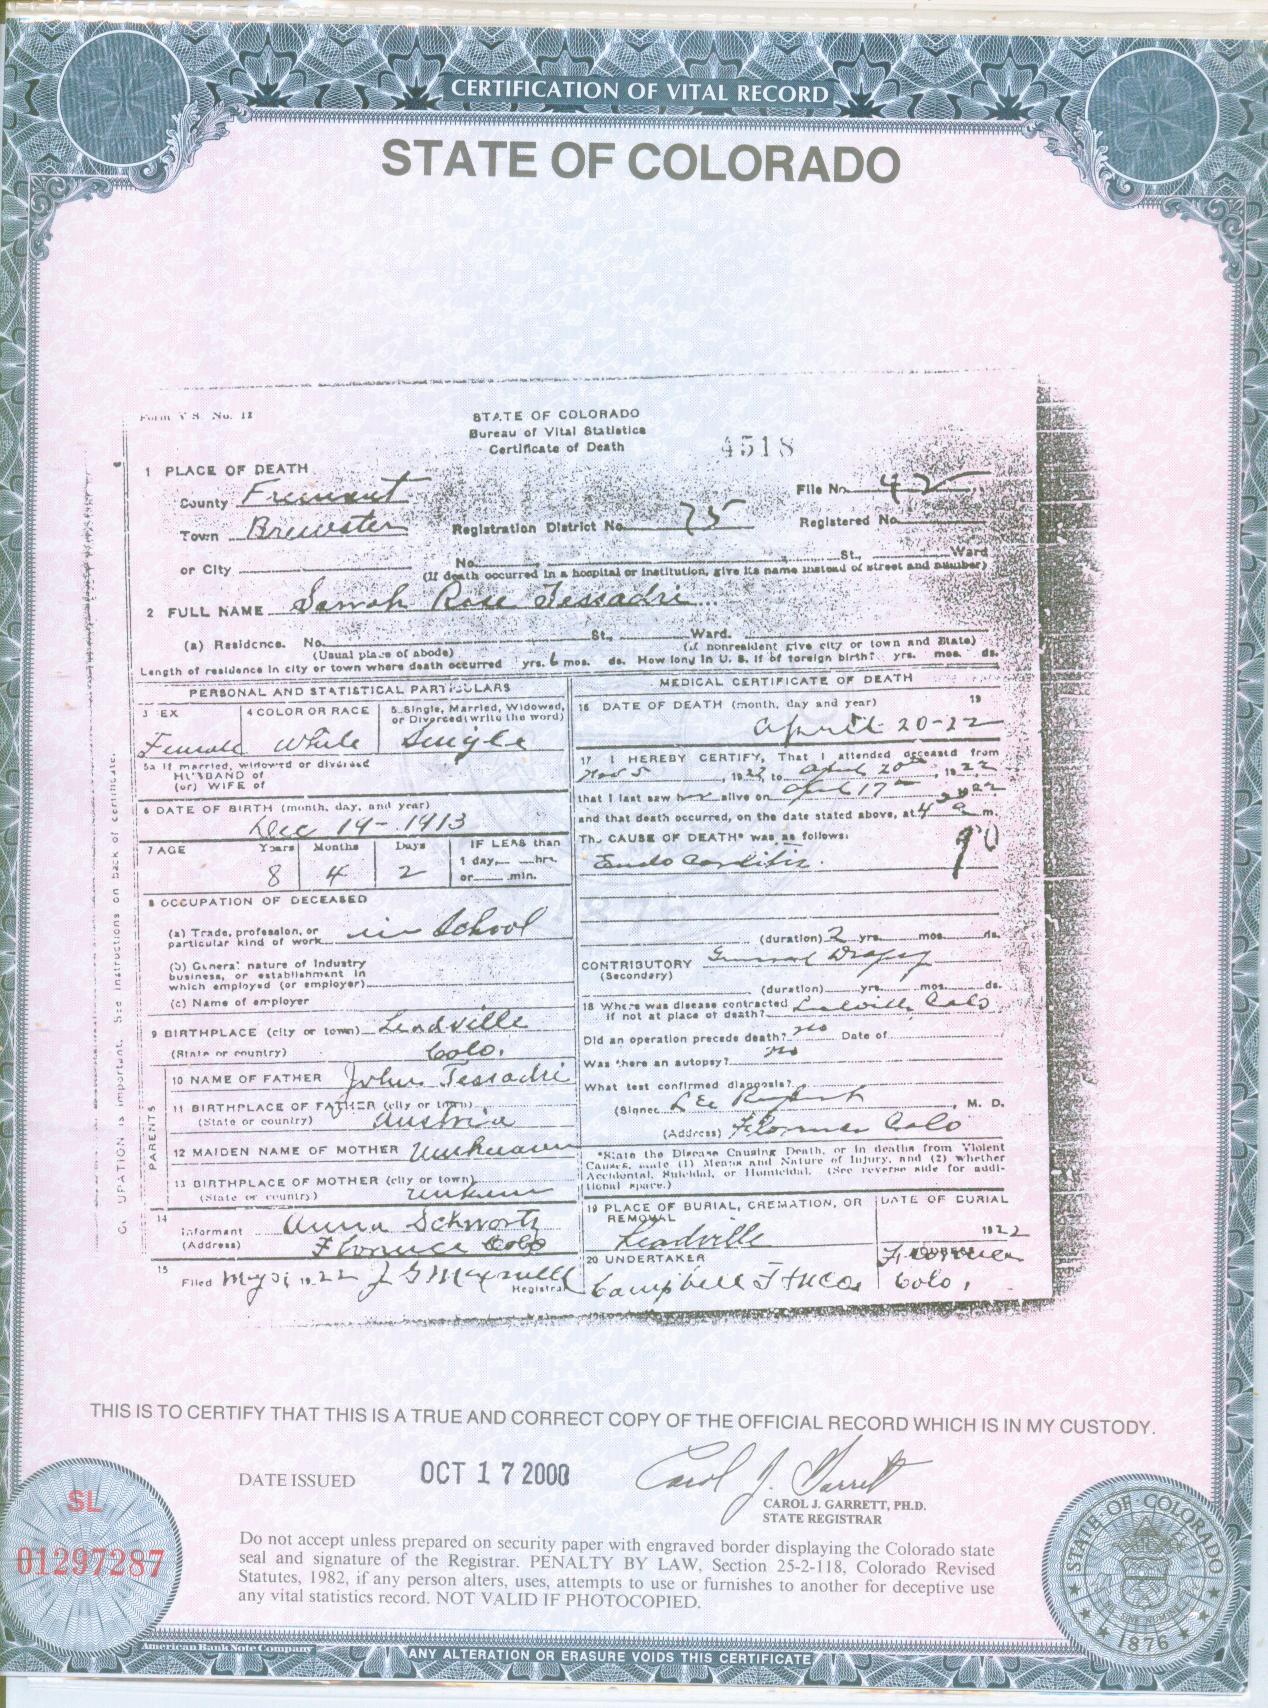 CERTIFICATION OF VITAL RECORD
STATE OF COLORADO
Form V S. No. 12
STATE OF COLORADO
Bureau of Vital Statistics
Certificate of Death
4518
1 PLACE OF DEATH
County Fremont
File No. 42
Town Brewster
Registration District No. 75
Registered No.
or City
No. St., Ward
(If death occurred in a hospital or institution, give its name instead of street and number)
2 FULL NAME Sarrah Rose Tessadri
(a) Residence. No. St., Ward.
(Usual place of abode) (If nonresident give city or town and State)
Length of residence in city or town where death occurred yrs. 6 mos. ds. How long in U. S. if of foreign birth? yrs. mos. ds.
PERSONAL AND STATISTICAL PARTICULARS
3 SEX
4 COLOR OR RACE
5 Single, Married, Widowed,
or Divorced (write the word)
Female White Single
5a If married, widowed or divorced
HUSBAND of
(or) WIFE of
6 DATE OF BIRTH (month, day, and year)
Dec 19 - 1913
7 AGE Years Months Days IF LESS than
1 day, hrs.
or min.
8 4 2
8 OCCUPATION OF DECEASED
(a) Trade, profession, or
particular kind of work in School
(b) General nature of Industry
business, or establishment in
which employed (or employer)
(c) Name of employer
9 BIRTHPLACE (city or town) Leadville
(State or country) Colo.
PARENTS
10 NAME OF FATHER John Tessadri
11 BIRTHPLACE OF FATHER (city or town)
(State or country) Austria
12 MAIDEN NAME OF MOTHER Unknown
13 BIRTHPLACE OF MOTHER (city or town)
(State or country) Unknown
14
Informant Anna Schwartz
(Address) Florence Colo
15
Filed 1922
Registrar
MEDICAL CERTIFICATE OF DEATH
16 DATE OF DEATH (month, day and year) 19
April 20-22
17 I HEREBY CERTIFY, That I attended deceased from
Nov 5, 1922 to April 20th, 1922
that I last saw her alive on April 17th 1922
and that death occurred, on the date stated above, at 4 a m.
The CAUSE OF DEATH* was as follows:
Endo Carditis
90
(duration) 2 yrs. mos. ds.
CONTRIBUTORY General Dropsy
(Secondary)
(duration) yrs. mos. ds.
18 Where was disease contracted
if not at place of death? Leadville Colo
Did an operation precede death? no Date of
Was there an autopsy? no
What test confirmed diagnosis?
(Signed, M. D.
(Address) Florence Colo
*State the Disease Causing Death, or in deaths from Violent
Causes, state (1) Means and Nature of Injury, and (2) whether
Accidental, Suicidal, or Homicidal. (See reverse side for addi-
tional space.)
19 PLACE OF BURIAL, CREMATION, OR
REMOVAL
Leadville
DATE OF BURIAL
1922
20 UNDERTAKER
Campbell
ADDRESS
Florence
Colo.
OCCUPATION is important. See instructions on back of certificate.
THIS IS TO CERTIFY THAT THIS IS A TRUE AND CORRECT COPY OF THE OFFICIAL RECORD WHICH IS IN MY CUSTODY.
DATE ISSUED OCT 17 2000
Carol J. Garrett
CAROL J. GARRETT, PH.D.
STATE REGISTRAR
SL
01297287
Do not accept unless prepared on security paper with engraved border displaying the Colorado state
seal and signature of the Registrar. PENALTY BY LAW, Section 25-2-118, Colorado Revised
Statutes, 1982, if any person alters, uses, attempts to use or furnishes to another for deceptive use
any vital statistics record. NOT VALID IF PHOTOCOPIED.
STATE OF COLORADO
1876
American Bank Note Company
ANY ALTERATION OR ERASURE VOIDS THIS CERTIFICATE